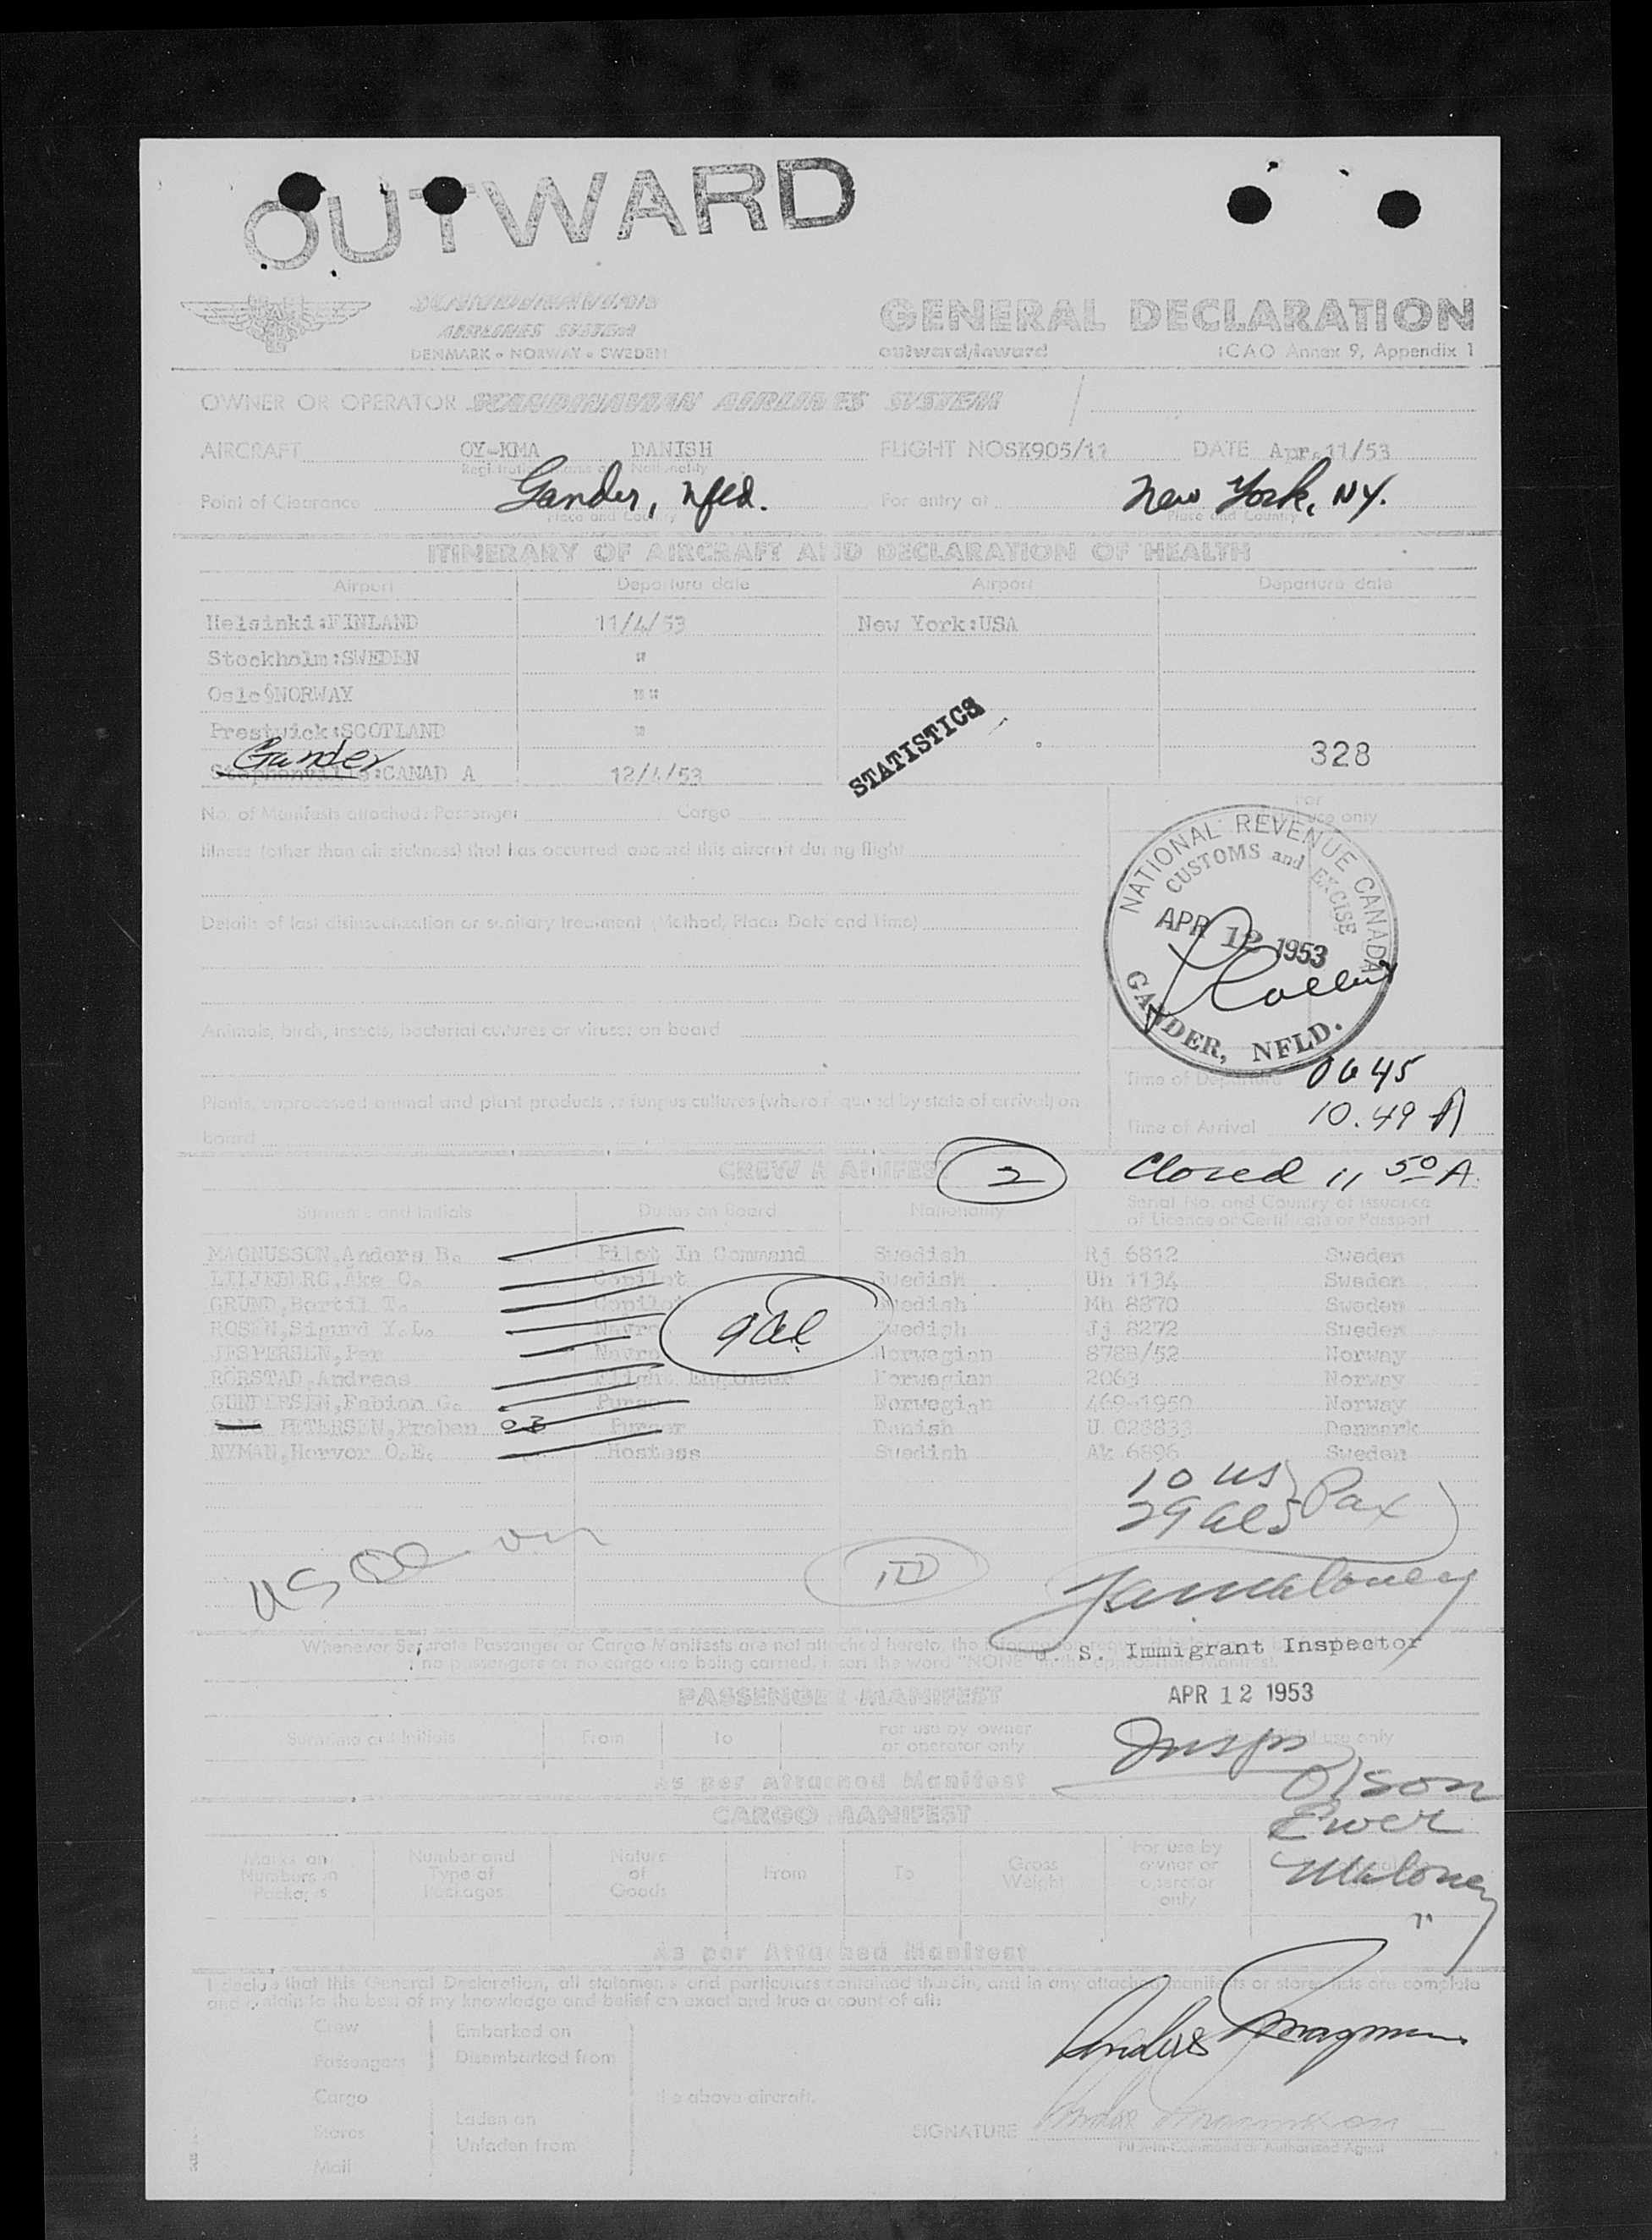 OUTWARD
SCANDINAVIAN
AIRLINES SYSTEM
DENMARK • NORWAY • SWEDEN
GENERAL DECLARATION
outward/inward ICAO Annex 9, Appendix 1
OWNER OR OPERATOR SCANDINAVIAN AIRLINES SYSTEM
AIRCRAFT OY-KMA DANISH FLIGHT NO SK905/11 DATE Apr. 11/53
Point of Clearance Gander, Nfld. For entry at New York, NY.
Place and Country Place and Country
ITINERARY OF AIRCRAFT AND DECLARATION OF HEALTH
Airport Departure date Airport Departure date
Helsinki:FINLAND 11/4/53 New York:USA
Stockholm:SWEDEN "
Oslo:NORWAY " "
Prestwick:SCOTLAND "
Gander
Stephenville:CANAD A 12/4/53
STATISTICS
328
No. of Manifests attached: Passenger Cargo
For
use only
Illness (other than air sickness) that has occurred aboard this aircraft during flight
Details of last disinsectization or sanitary treatment (Method, Place Date and Time)
Animals, birds, insects, bacterial cultures or viruses on board
Plants, unprocessed animal and plant products or fungus cultures (where required by state of arrival) on
board
NATIONAL REVENUE CANADA
CUSTOMS and EXCISE
APR 12 1953
GANDER, NFLD.
Time of Departure 0645
Time of Arrival 10.49 A
CREW MANIFEST 2 Closed 11 50 A.
Surname and Initials Duties on Board Nationality Serial No. and Country of issuance
of Licence or Certificate or Passport
MAGNUSSON,Anders B. Pilot In Command Swedish Rj 6812 Sweden
LILJEBERG,Åke C. Copilot Swedish Uh 1134 Sweden
GRUND,Bertil T. Copilot Swedish Mh 8870 Sweden
ROSEN,Sigurd Y.L. Navro Swedish Jj 8272 Sweden
JESPERSEN,Per Navro Norwegian 878B/52 Norway
RÖRSTAD,Andreas Flight Engineer Norwegian 2063 Norway
GUNDERSEN,Fabian G. Purser Norwegian 469-1950 Norway
PETERSEN,Preben Purser Danish U 028833 Denmark
NYMAN,Hervor O.E. Hostess Swedish Ak 6896 Sweden
10 US
29 als Pax
U. S. Immigrant Inspector
Whenever Separate Passenger or Cargo Manifests are not attached hereto, the
no passengers or no cargo are being carried, insert the word "NONE"
APR 12 1953
PASSENGER MANIFEST
Surname and Initials From To For use by owner
or operator only
As per Attached Manifest
Insps
Olson
Ewer
Maloney
CARGO MANIFEST
Marks and
Numbers on
Packages
Number and
Type of
Packages
Nature
of
Goods
From To Gross
Weight
For use by
owner or
operator
only
As per Attached Manifest
I declare that this General Declaration, all statements and particulars contained therein, and in any attached manifests or stores lists are complete
and contain to the best of my knowledge and belief an exact and true account of all:
Crew Embarked on
Passengers Disembarked from
Cargo the above aircraft.
Stores Laden on
Mail Unladen from
SIGNATURE
Pilot-in-Command or Authorised Agent